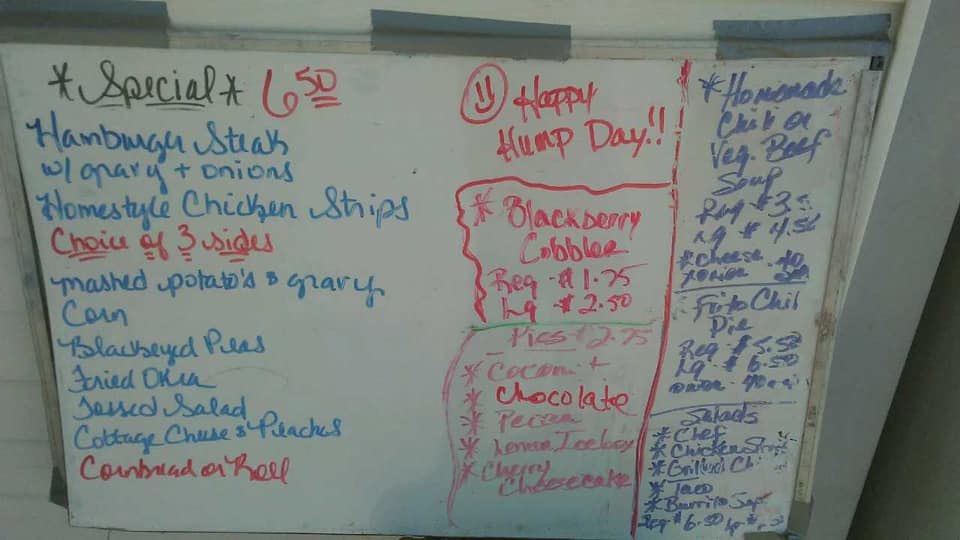 *Special* 6 50
Hamburger Steak
w/ gravy + onions
Homestyle Chicken Strips
Choice of 3 sides
mashed potato's & gravy
Corn
Blackeyed Peas
Fried Okra
Tossed Salad
Cottage Cheese & Peaches
Cornbread or Roll
Happy
Hump Day!!
* Blackberry
Cobbler
Reg - $1.75
Lg $2.50
Pies $2.75
* Coconut
* Chocolate
* Pecan
* Lemon Icebox
* Cherry
Cheesecake
* Homemade
Chili or
Veg. Beef
Soup
Reg $3
Lg $4.50
* Cheese
Frito Chili
Pie
Reg $5.50
Lg $6.50
onion
Salads
* Chef
* Chicken
* Grilled
* Taco
* Burrito
Reg $6.50